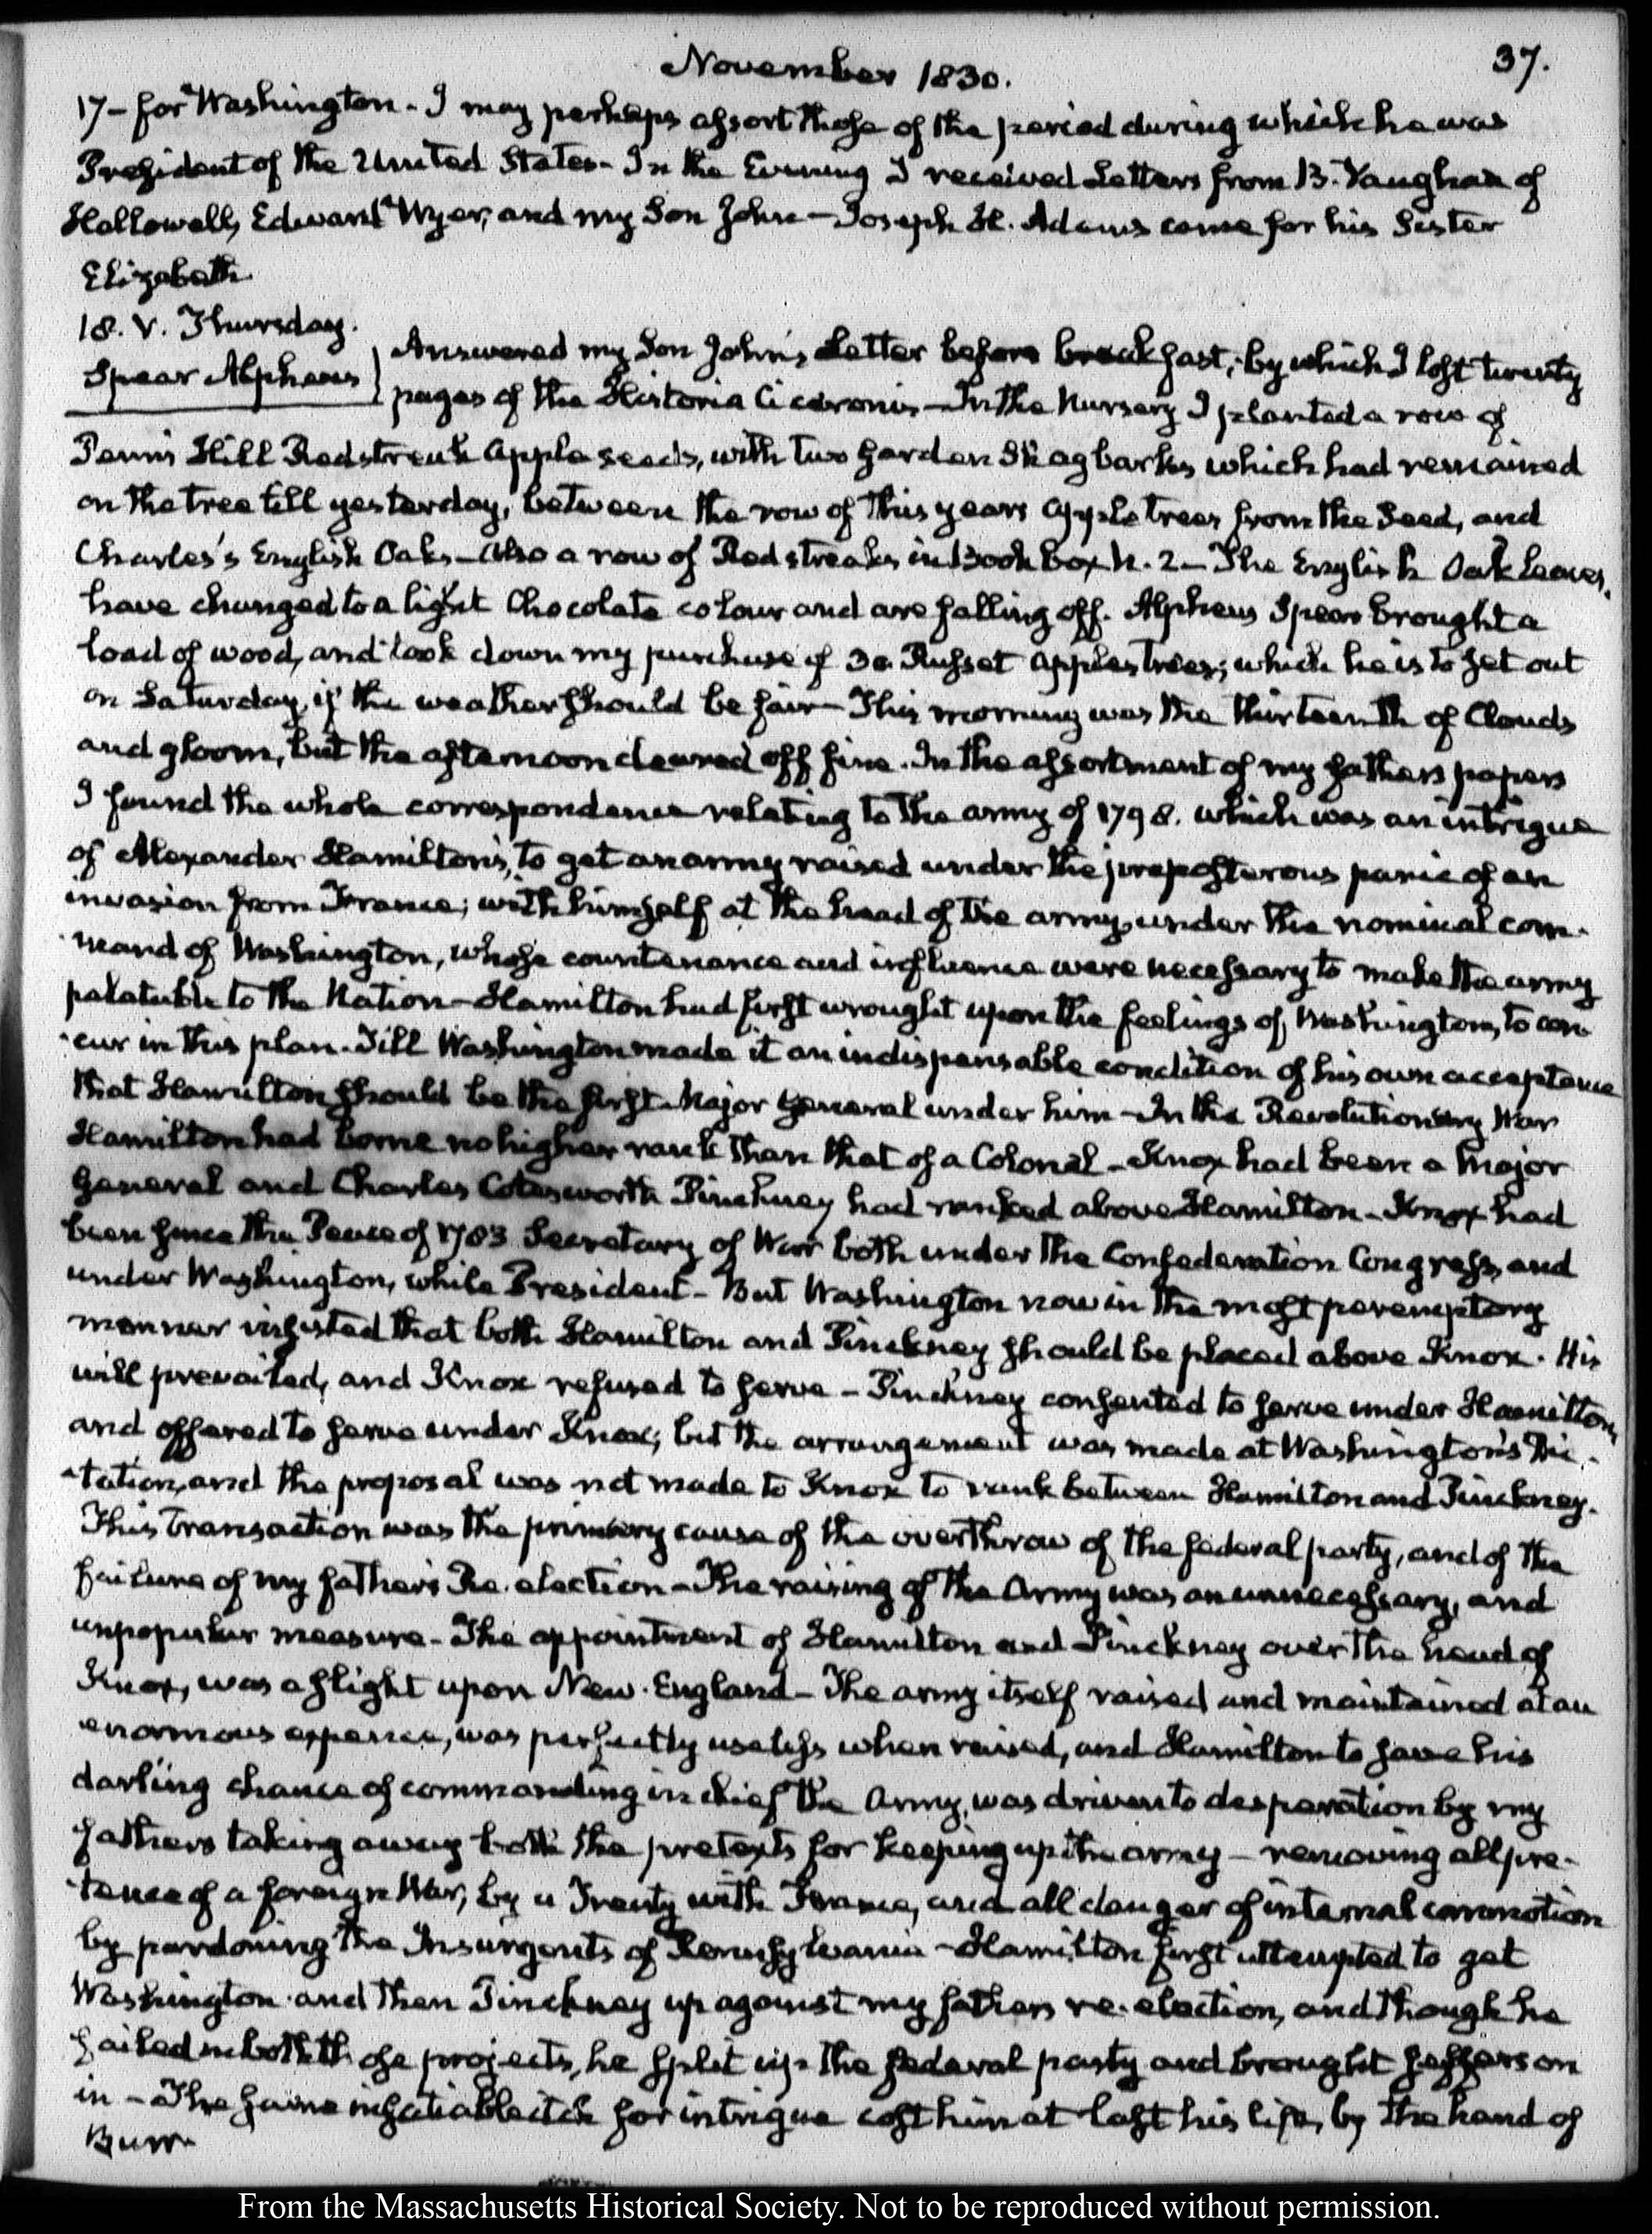 November 1830.
37.
17 - for Washington - I may perhaps assort those of the period during which he was
President of the United States - In the Evening I received Letters from B. Vaughan of
Hallowell, Edward Wyer, and my Son John - Joseph H. Adams came for his Sister
Elizabeth
18. V. Thursday.
Spear Alpheus
Answered my Son John's Letter before breakfast, by which I lost twenty
pages of the Historia Ciceronis - In the Nursery I planted a row of
Penn's Hill Redstreak apple seeds, with two garden Shagbarks which had remained
on the tree till yesterday, between the row of this years apple trees from the Seed, and
Charles's English Oaks - Also a row of Redstreaks in Book box N. 2 - The English Oak leaves
have changed to a light Chocolate colour and are falling off. Alpheus Spear brought a
load of wood, and took down my purchase of 30 Russet apple trees; which he is to set out
on Saturday, if the weather should be fair - This morning was the thirteenth of Clouds
and gloom, but the afternoon cleared off fine. In the assortment of my fathers papers
I found the whole correspondence relating to the army of 1798. which was an intrigue
of Alexander Hamilton's, to get an army raised under the preposterous panic of an
invasion from France; with himself at the head of the army, under the nominal com-
mand of Washington, whose countenance and influence were necessary to make the army
palatable to the Nation - Hamilton had first wrought upon the feelings of Washington, to con
cur in this plan. Till Washington made it an indispensable condition of his own acceptance
that Hamilton should be the first Major General under him - In the Revolutionary War
Hamilton had borne no higher rank than that of a Colonel - Knox had been a Major
General and Charles Cotesworth Pinckney had ranked above Hamilton - Knox had
been since the Peace of 1783 Secretary of War both under the Confederation Congress, and
under Washington, while President - But Washington now in the most peremptory
manner insisted that both Hamilton and Pinckney should be placed above Knox. His
will prevailed, and Knox refused to serve - Pinckney consented to serve under Hamilton,
and offered to serve under Knox; but the arrangement was made at Washington's Dic-
tation, and the proposal was not made to Knox to rank between Hamilton and Pinckney.
This transaction was the primary cause of the overthrow of the federal party, and of the
failure of my father's Re-election - The raising of the Army was an unnecessary, and
unpopular measure - The appointment of Hamilton and Pinckney over the head of
Knox, was a slight upon New-England - The army itself raised and maintained at an
enormous expence, was perfectly useless when raised, and Hamilton to save his
darling chance of commanding in chief the Army, was driven to desperation by my
fathers taking away both the pretexts for keeping up the army - removing all pre-
tence of a foreign War, by a Treaty with France, and all danger of internal commotion
by pardoning the Insurgents of Pennsylvania - Hamilton first attempted to get
Washington and then Pinckney up against my fathers re-election, and though he
failed in both those projects, he split up the federal party and brought Jefferson
in - The same insatiable itch for intrigue cost him at last his life, by the hand of
Burr
From the Massachusetts Historical Society. Not to be reproduced without permission.